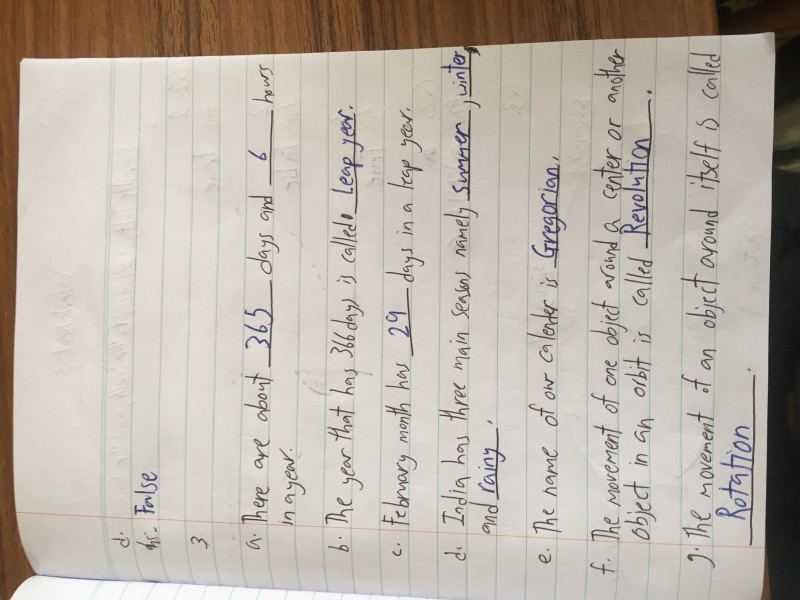 d.
Ans. False
3
a. There are about 365 days and 6 hours
in a year.
b. The year that has 366 days is called Leap year.
c. February month has 29 days in a leap year.
d. India has three main seasons namely Summer, winter,
and rainy.
e. The name of our calender is Gregorian.
f. The movement of one object around a center or another
object in an orbit is called Revolution.
g. The movement of an object around itself is called
Rotation.